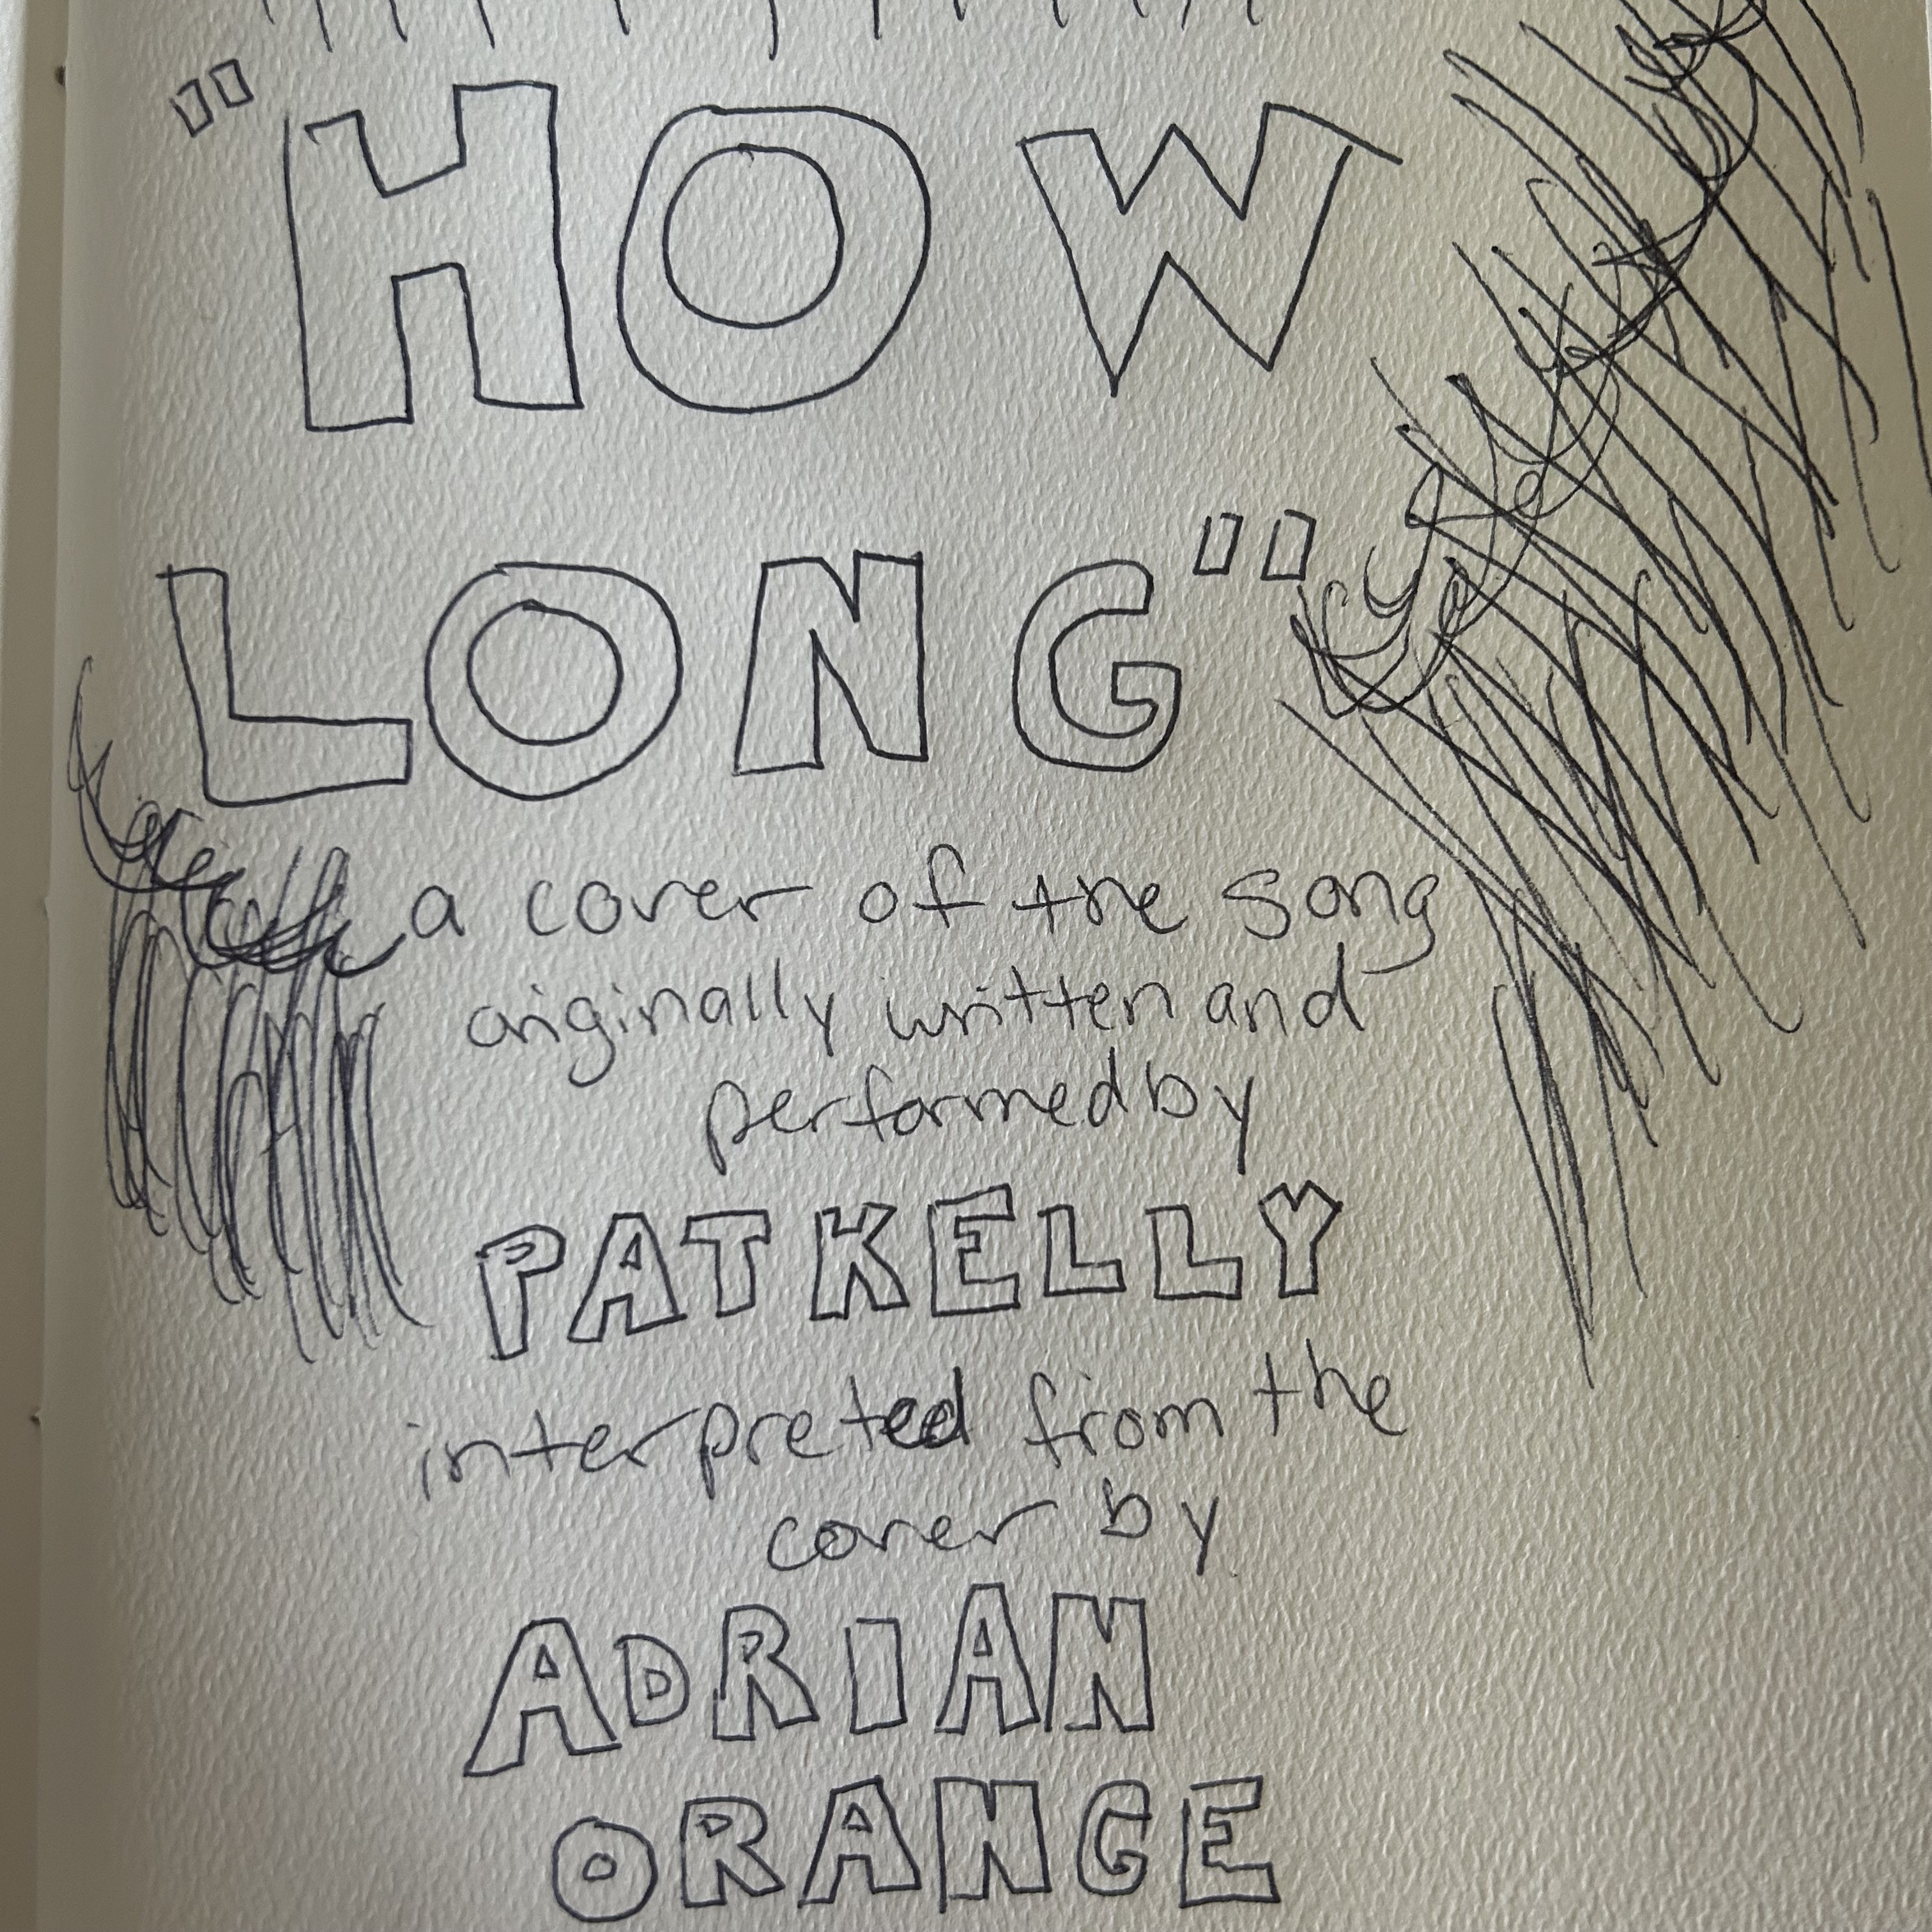 "HOW
LONG"
a cover of the song
originally written and
performed by
PAT KELLY
interpreted from the
cover by
ADRIAN
ORANGE